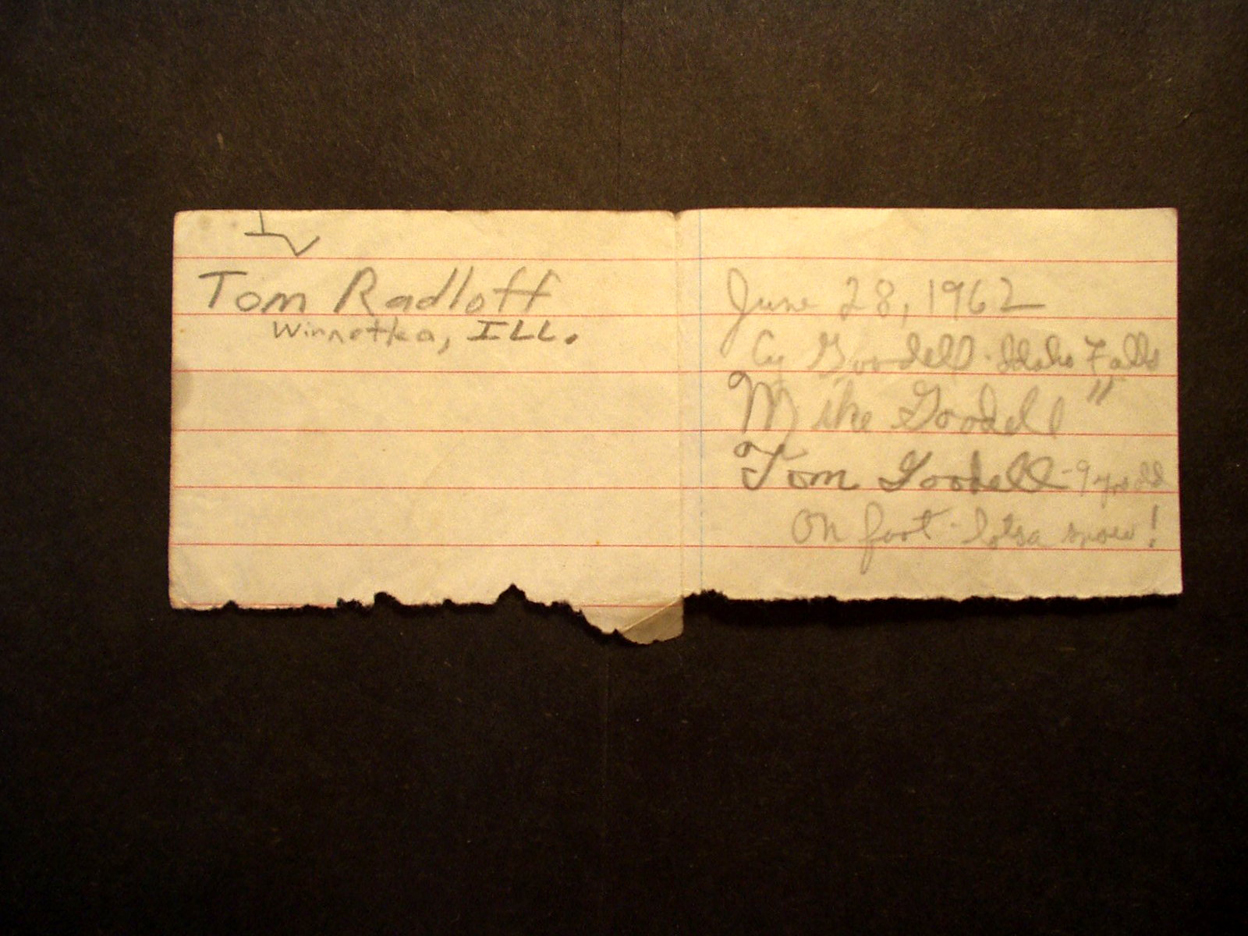 Tom Radloff
Winnetka, ILL.
June 28, 1962
Cy Goodell - Idaho Falls
Mike Goodell "
Tom Goodell - 9 yrs old
On foot - lotsa snow!